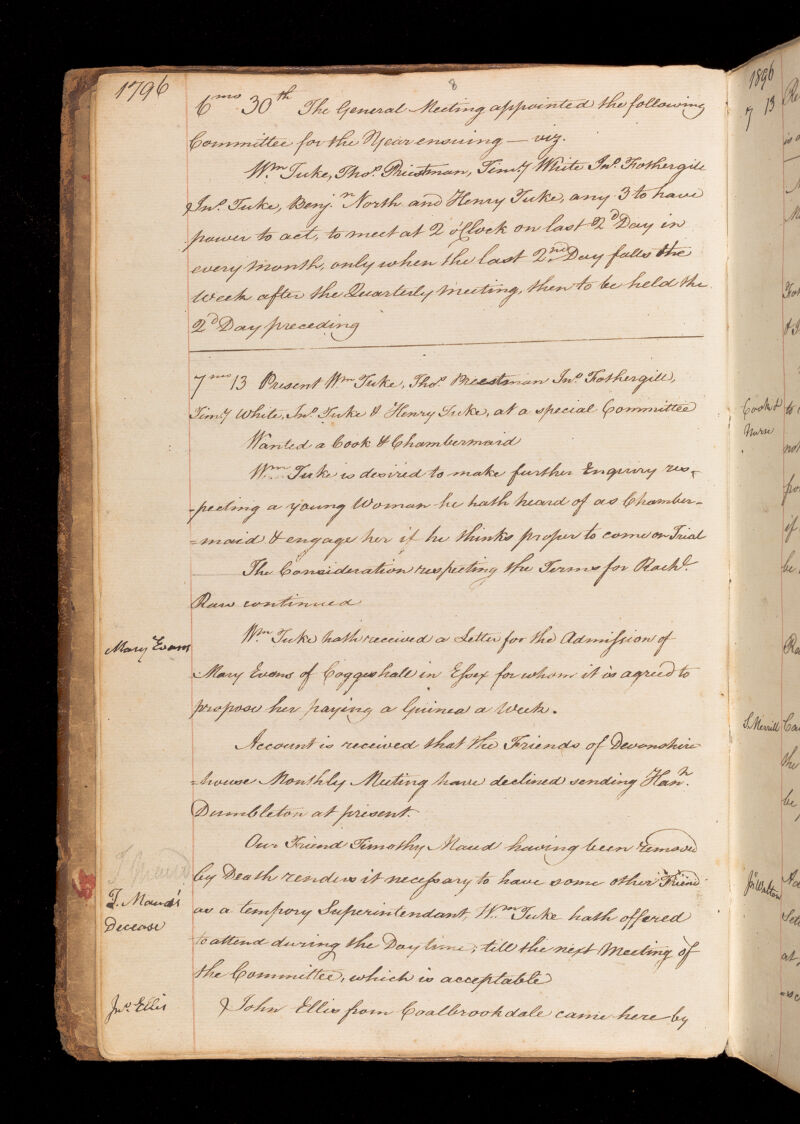 1796
8
6mo 30th The General Meeting appointed the following
Committee for the Year ensuing — viz.
Wm Tuke, Thos. Priestman, Timy White Jno. Fothergill
Jno. Tuke, Benjn. North and Henry Tuke, any 3 to have
power to act, to meet at 2 o'Clock on last 2d Day in
every month, only when the last 2nd Day falls the
Week after the Quarterly meeting, then to be held the
2d Day preceding
7mo 13 Present Wm Tuke, Thos. Priestman Jno. Fothergill,
Timy White, Jno. Tuke & Henry Tuke, at a special Committee
Wanted a Cook & Chambermaid
Wm Tuke is desired to make further Enquiry res-
-pecting a young Woman he hath heard of as Chamber=
=maid & engage her if he thinks proper to come on Trial
The Consideration respecting the Terms for Rachl.
Raw continued
Mary Evans
Wm Tuke hath received a Letter for the Admission of
Mary Evans of Coggeshall in Essex for whom it is agreed to
propose her paying a Guinea a Week.
Account is received that the Friends of Devonshire
=house Monthly Meeting have declined sending Hanh.
Dumbleton at present.
Our Friend Timothy Maud having been removed
T. Maud
by Death renders it necessary to have some other Friend
T. Maud's
as a tempory Superintendant, Wm Tuke hath offered
Decease
to attend during the Day time, till the next Meeting of
the Committee, which is acceptable
Jno. Ellis
John Ellis from Coalbrookdale came here by
1896
7 13
Cook &
Nurse
S. Merrill
Jno Walton